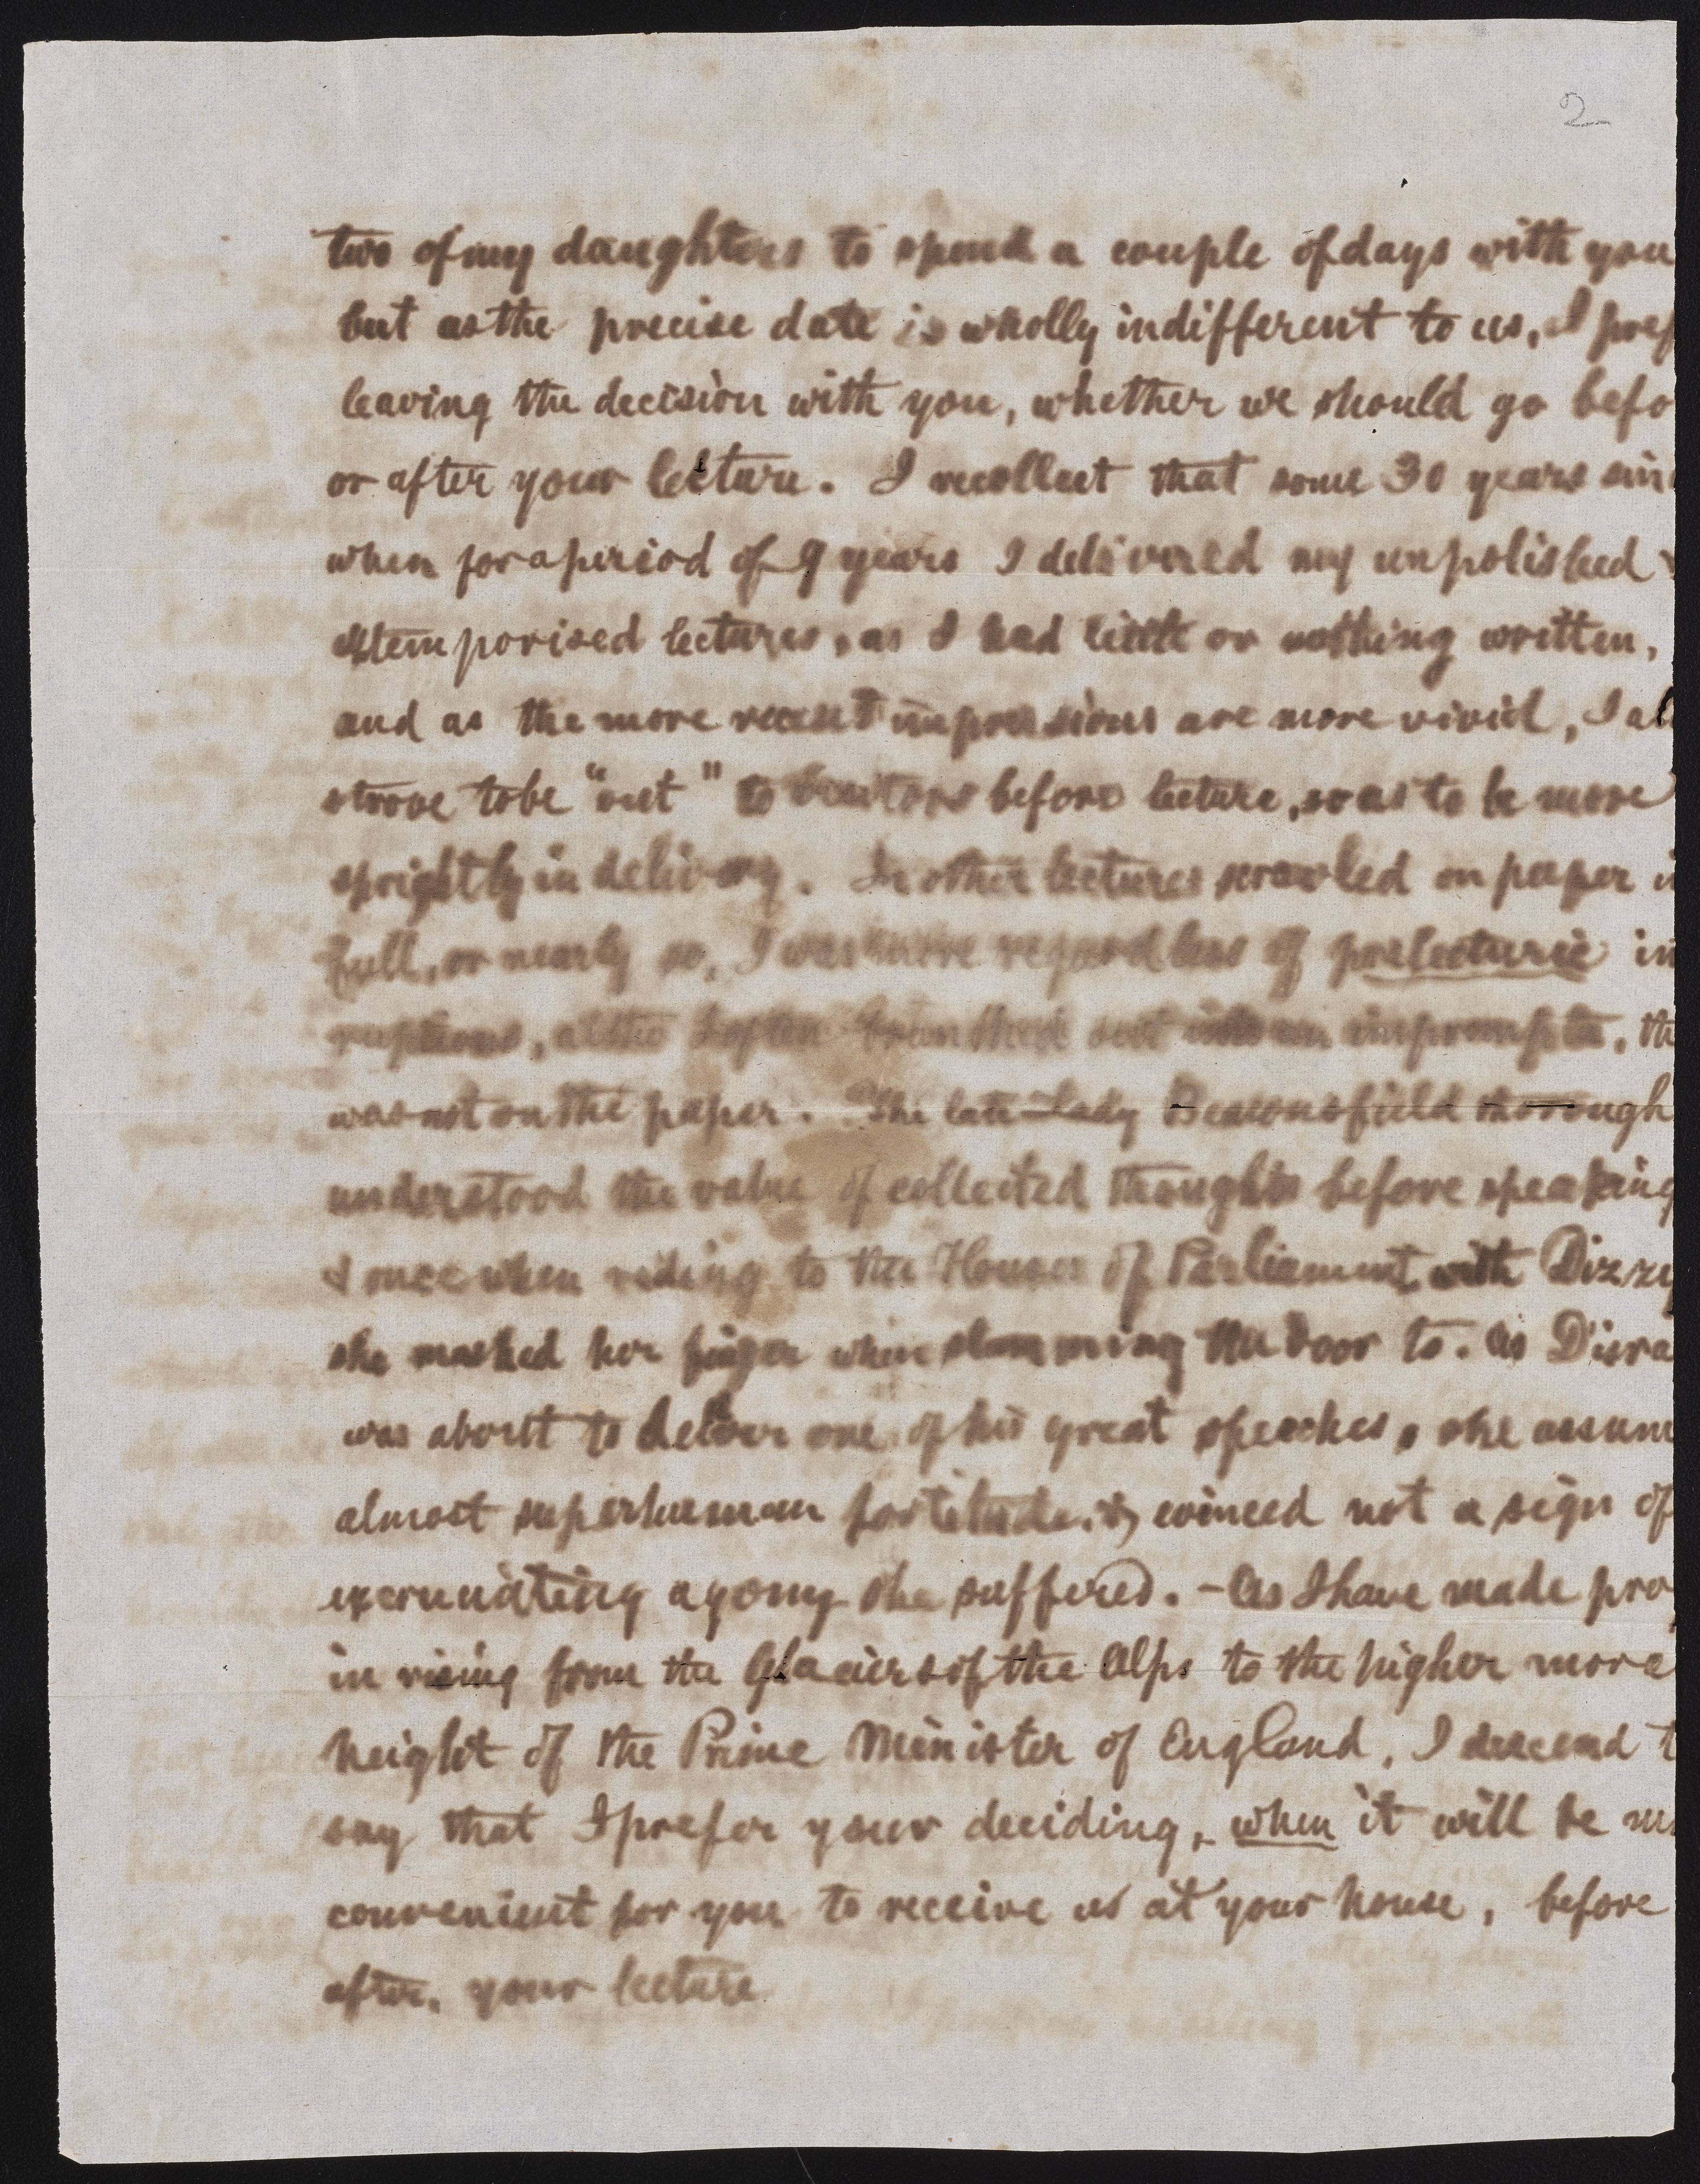 2
two of my daughters to spend a couple of days with you
but as the precise date is wholly indifferent to us, I pref
leaving the decision with you, whether we should go befo
or after your lecture. I recollect that some 30 years sin
when for a period of 9 years I delivered my unpolished
extemporised lectures, as I had little or nothing written,
and as the more recent impressions are more vivid, I al
strove to be "out" to before lecture, so as to be more
sprightly in delivery. In other lectures scrawled on paper i
full, or nearly so, I was more regardless of prelecturie in
ruptions, altho I often branched out into an impromptu, th
was not on the paper. The late Lady Beaconsfield thorough
understood the value of collected thoughts before speaking
& once when riding to the Houses of Parliament with Dizzy
she mashed her finger when slamming the door to. As Disra
was about to deliver one of his great speeches, she assum
almost superhuman fortitude, & evinced not a sign of
excruciating agony she suffered. - As I have made pro
in rising from the Glaciers of the Alps to the higher more
height of the Prime Minister of England, I descend t
say that I prefer your deciding, when it will be mo
convenient for you to receive us at your house, before
after, your lecture